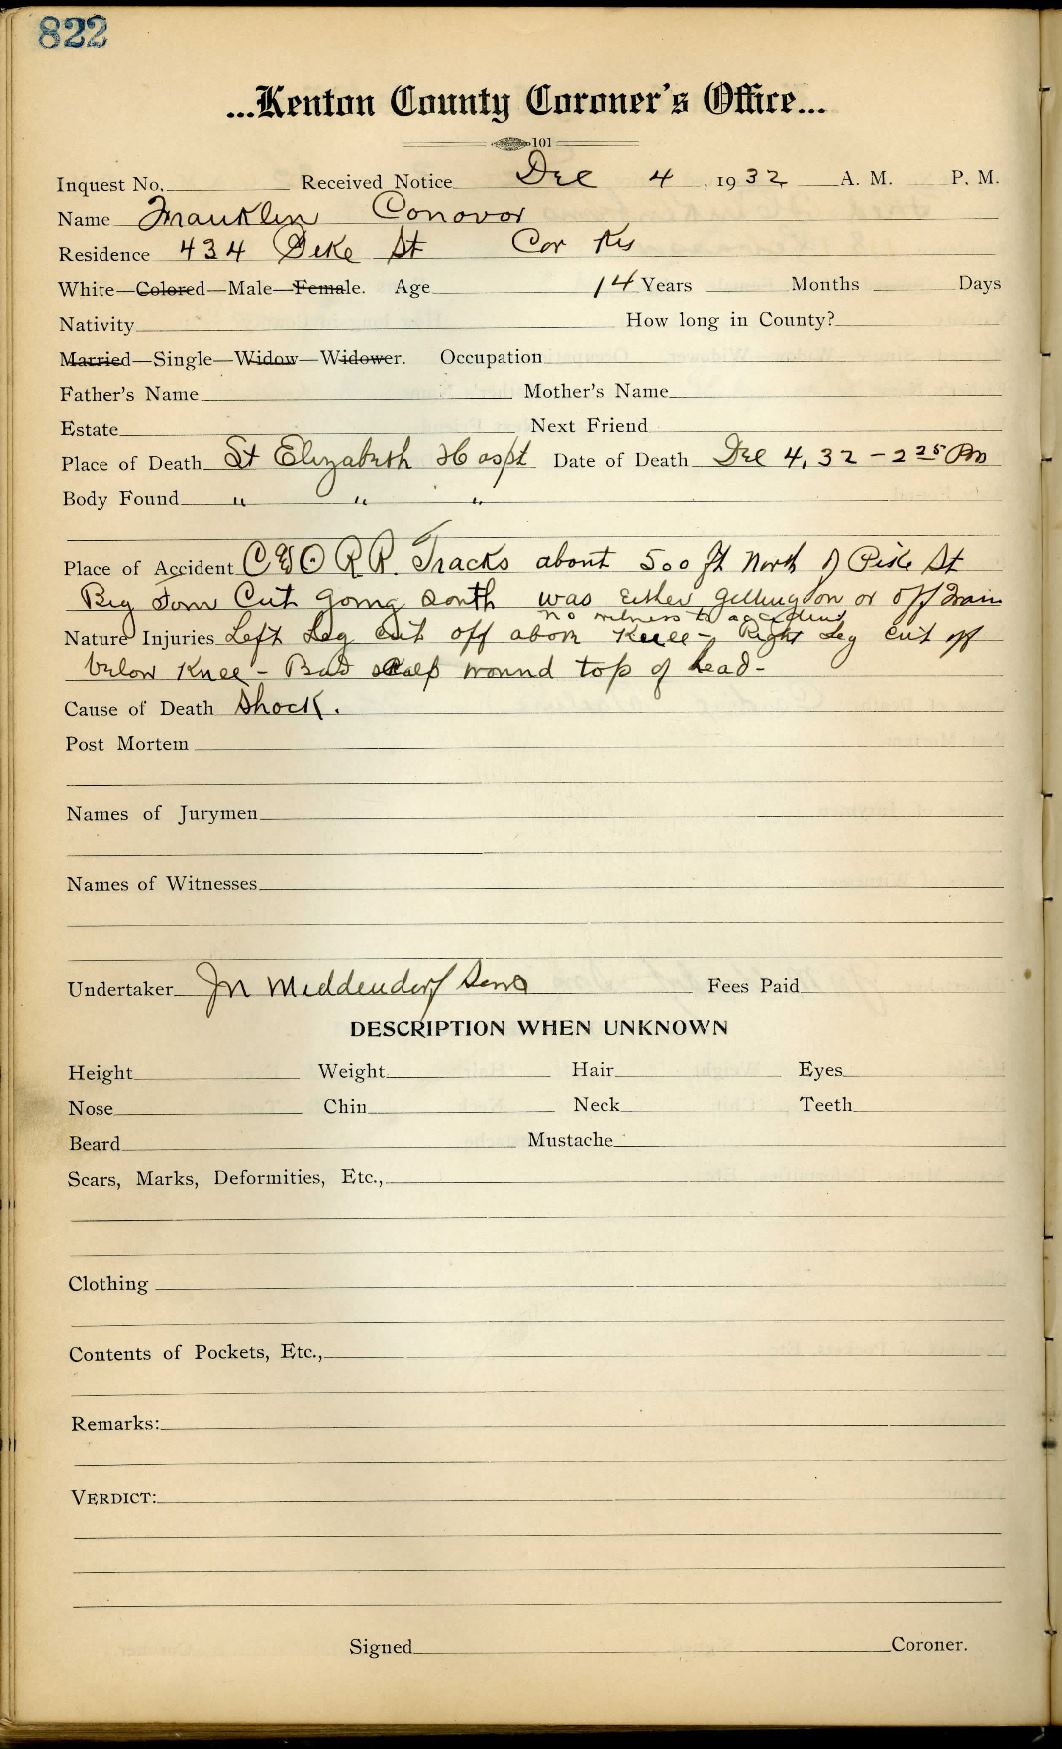 822
...Kenton County Coroner's Office...
101
Inquest No. Received Notice Dec 4, 1932 A. M. P. M.
Name Franklin Conovor
Residence 434 Pike St Cov Ky
White—Colored—Male—Female. Age 14 Years Months Days
Nativity How long in County?
Married—Single—Widow—Widower. Occupation
Father's Name Mother's Name
Estate Next Friend
Place of Death St Elizabeth Hospt Date of Death Dec 4, 32 - 2 25 Pm
Body Found " " "
Place of Accident C & O R.R. Tracks about 500 ft North of Pike St
Big Cut going South was either getting on or off train
no witness to accident
Nature Injuries Left Leg cut off above Knee - Right Leg cut off
below Knee - Bad scalp wound top of head -
Cause of Death Shock.
Post Mortem
Names of Jurymen
Names of Witnesses
Undertaker Jn Middendorf Sons Fees Paid
DESCRIPTION WHEN UNKNOWN
Height Weight Hair Eyes
Nose Chin Neck Teeth
Beard Mustache
Scars, Marks, Deformities, Etc.,
Clothing
Contents of Pockets, Etc.,
Remarks:
VERDICT:
Signed Coroner.